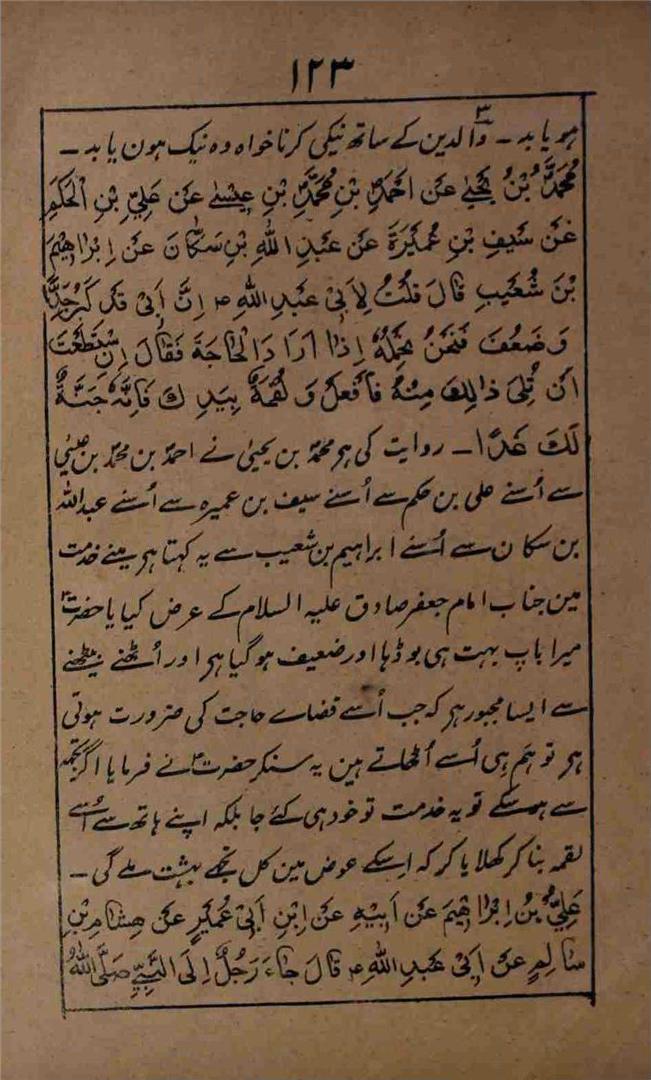 ۱۲۳
ہو یا بد ۔ ۳ والدین کے ساتھ نیکی کرنا خواہ وہ نیک ہون یا بد ۔
مُحَمَّدُ بْنُ یَحْییٰ عَن اَحْمَدَ بْنِ مُحَمَّدِ بْنِ عِیسیٰ عَن عَلِیِّ بْنِ الْحَکَمِ
عَن سَیْفِ بْنِ عُمَیْرَةَ عَن عَبْدِ اللهِ بْنِ سَکَّانَ عَن اِبْرَاهِیْمَ
بْنَ شُعَیبٍ قَالَ قُلْتُ لِاَبِیْ عَبْدِ اللهِ ؑ اِنَّ اَبِیْ قَد کَبُرَ جِدًّا
وَ ضَعُفَ فَنَحْنُ نَحْمِلُهٗ اِذَا اَرَادَ الْحَاجَةَ فَقَالَ اِنِ اسْتَطَعْتَ
اَن تَلِیَ ذَالِكَ مِنْهُ فَافْعَلْ وَ لَقِّمْهُ بِیَدِكَ فَاِنَّهٗ جَنَّةٌ
لَكَ غَدًا ۔ روایت کی ہر محمد بن یحییٰ نے احمد بن محمد بن عیسیٰ
سے اُسنے علی بن حکم سے اُسنے سیف بن عمیرہ سے اُسنے عبداللہ
بن سکان سے اُسنے ابراہیم بن شعیب سے یہ کہتا ہر مینے خدمت
مین جناب امام جعفر صادق علیہ السلام کے عرض کیا یا حضرت ؑ
میرا باپ بہت ہی بوڈہا اور ضعیف ہو گیا ہر اور اُٹھنے بیٹھنے
سے ایسا مجبور ہر کہ جب اُسے قضاے حاجت کی ضرورت ہوتی
ہر تو ہم ہی اُسے اُٹھاتے ہین یہ سنکر حضرت ؑ نے فرمایا اگر تجھ
سے ہو سکے تو یہ خدمت تو خود ہی کئے جا بلکہ اپنے ہاتھ سے اُسے
لقمہ بنا کر کھلایا کر کہ اِسکے عوض مین کل تجھے بہشت ملے گی ۔
عَلِیُّ بْنُ اِبْرَاهِیْمَ عَن اَبِیْهِ عَن اِبْنِ اَبِیْ عُمَیْرٍ عَن هِشَامِ بْنِ
سَالِمٍ عَن اَبِیْ عَبْدِ اللهِ ؑ قَالَ جَاءَ رَجُلٌ اِلَی النَّبِیِّ صَلَّی اللهُ